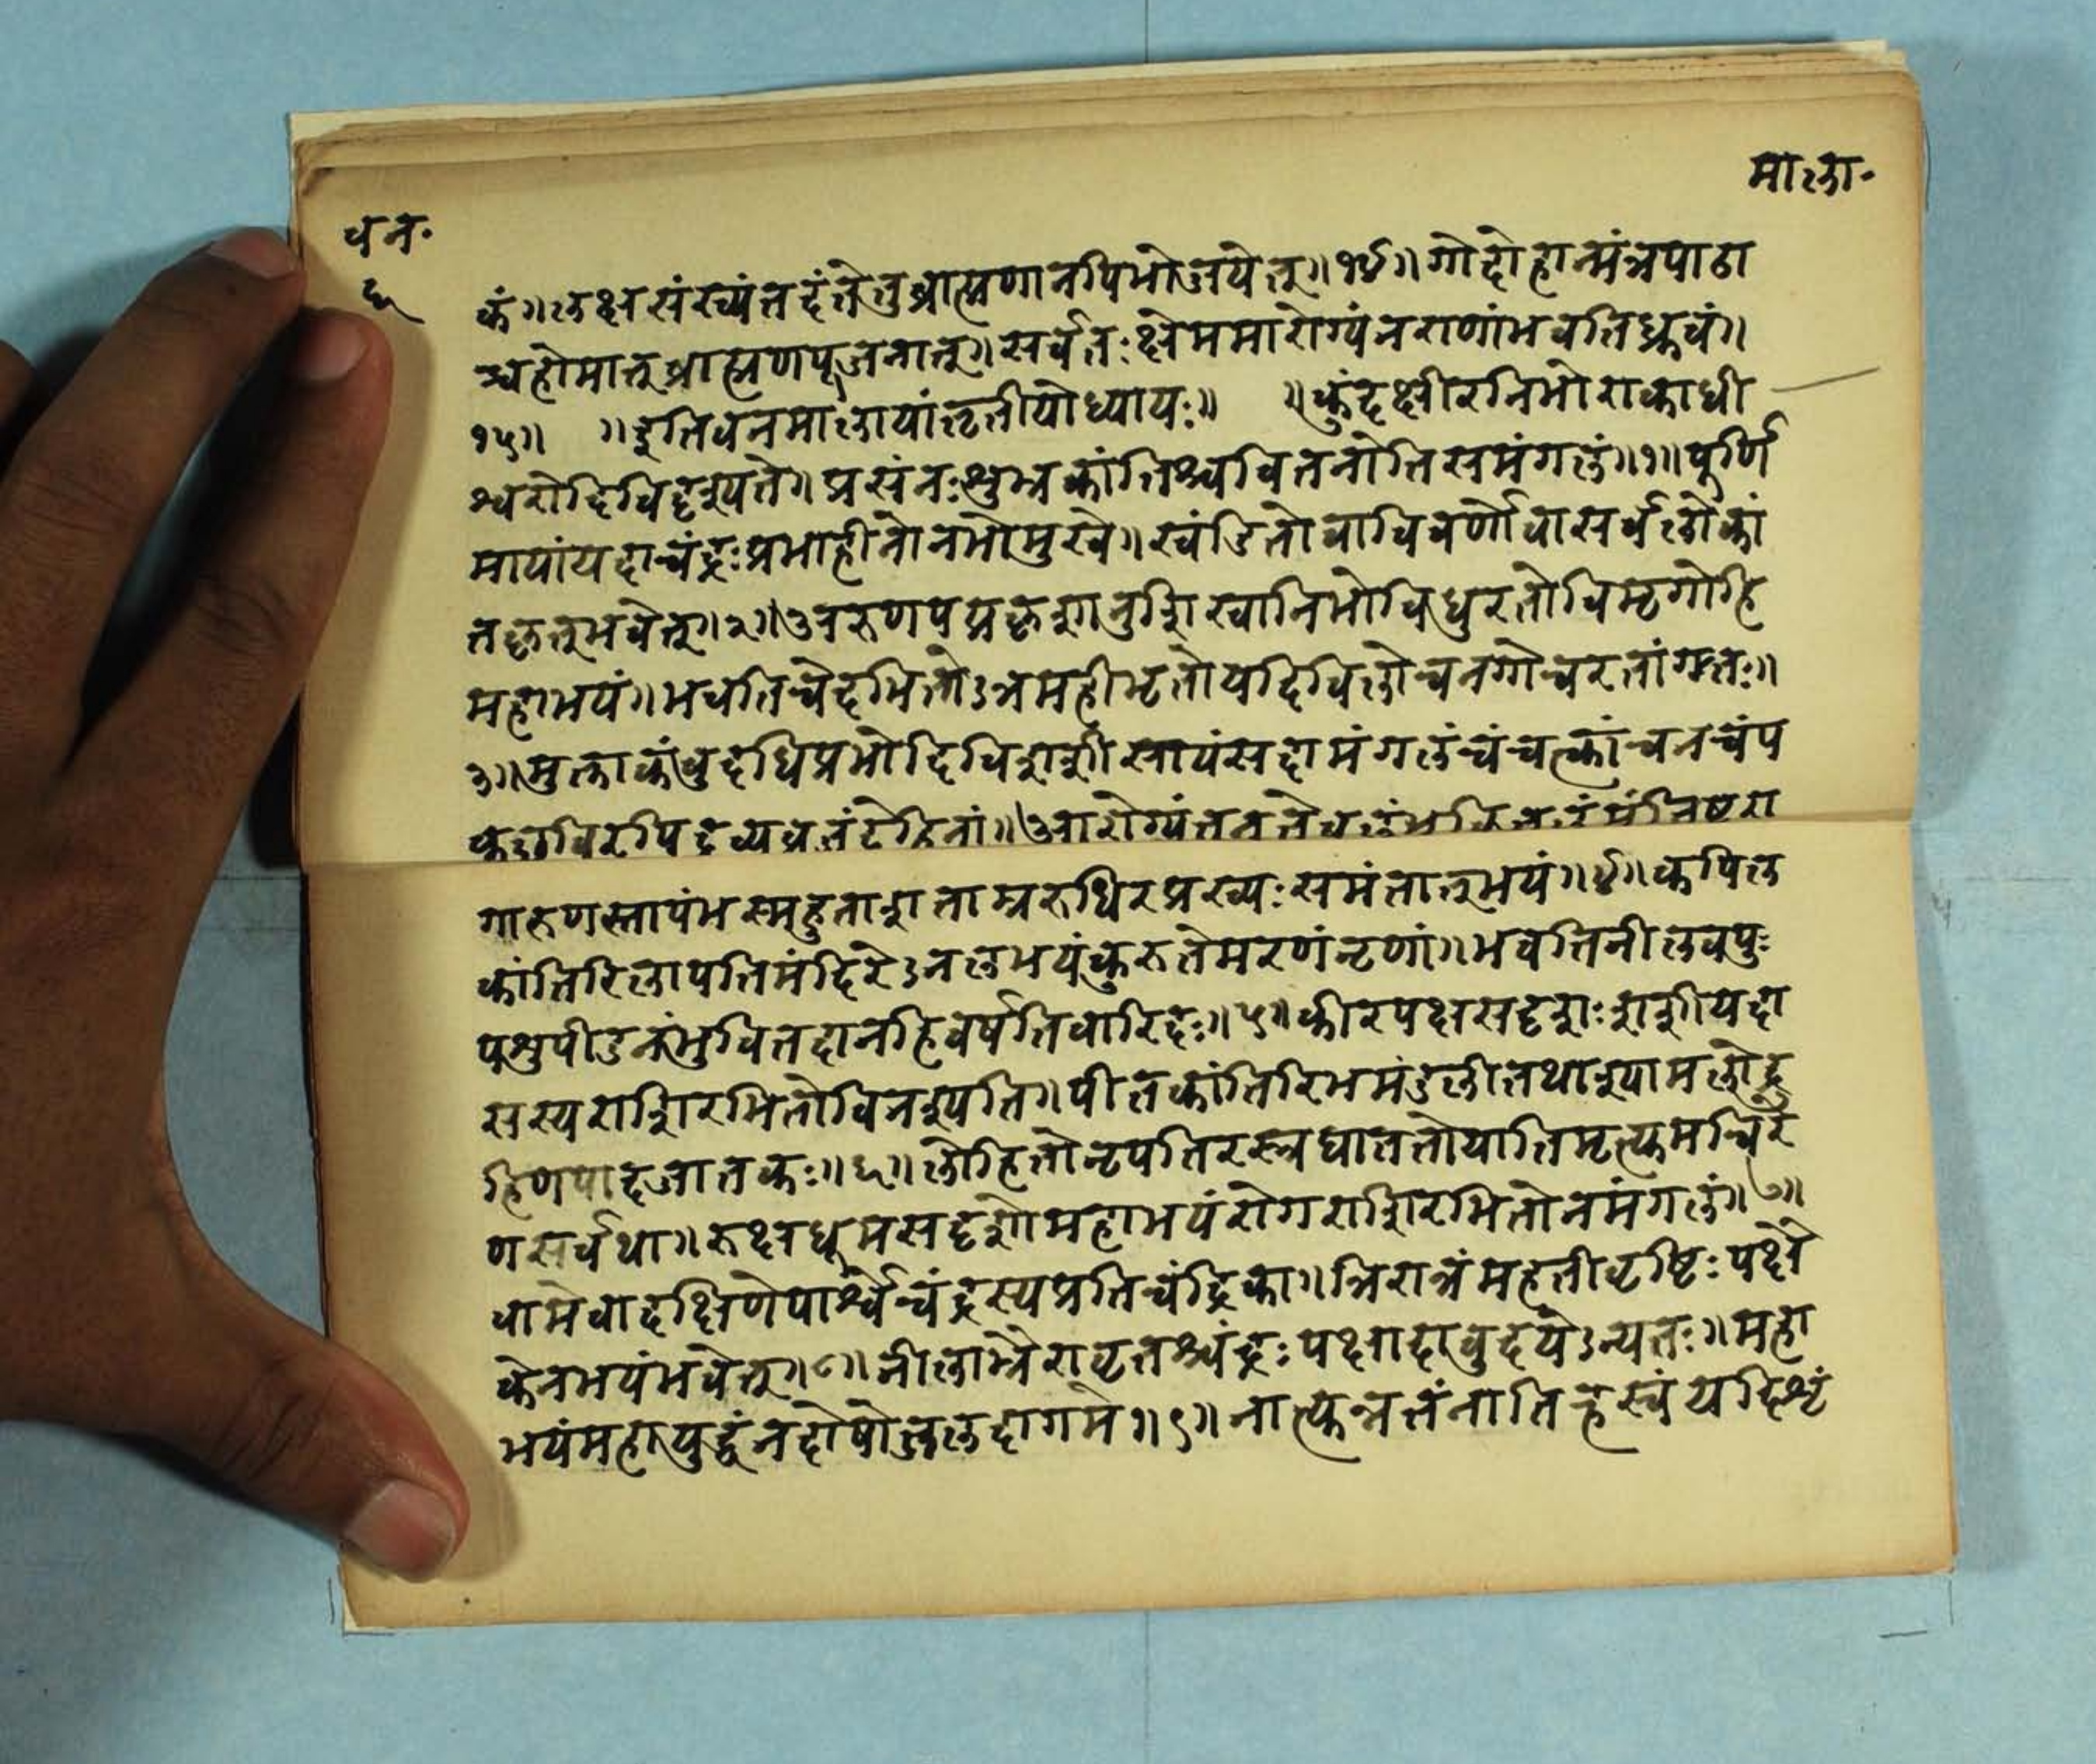 माला॰
वन॰
६
कं॥लक्षसंख्यंतदंतेतुब्राह्मणानपिभोजयेत्॥१४॥गोदोहान्मंत्रपाठा
च्चहोमात्तुब्राह्मणपूजनात्॥सर्वतःक्षेममारोग्यंनराणांभवतिध्रुवं॥
१५॥ ॥इतिवनमालायांतृतीयोध्यायः॥ ॥कुंदक्षीरनिभोराकाधी
श्वरोदिविदृश्यते॥प्रसंनःशुभ्रकांतिश्चवितनोतिसमंगलं॥१॥पूर्णि
मायांयदाचंद्रःप्रभाहीनोनभोमुखे॥खंडितोवाविवर्णोवासर्वलोकां
तकृत्भवेत्॥२॥अरुणपप्रकृशानुशिखानिभोविधुरतोविमृगोहि
महाभयं॥भवतिचेदभितोऽत्रमहीभृतोयदिविलोचनगोचरतांगतः॥
३॥मुक्ताकंबुदधिप्रभोदिविशशीसायंसदामंगलंचंचत्कांचनचंप
कछविरपिद्रव्यव्रजंदेहिनां॥आरोग्यंतनुते
गारुणस्तापंभस्महुताशताम्ररुधिरप्रख्यःसमंतात्भयं॥४॥कपिल
कांतिरिलापतिमंदिरेऽनलभयंकुरुतेमरणंनृणां॥भवतिनीलवपुः
पशुपीडनंभुवितदानहिवर्षतिवारिदः॥५॥कीरपक्षसदृशःशशीयदा
सस्यराशिरभितोविनश्यति॥पीतकांतिरिभमंडलीतथाश्यामलोद्रु
हिणपादजातकः॥६॥लोहितोनृपतिरस्त्रघाततोयातिमृत्युमचिरे
णसर्वथा॥रुक्षधूमसदृशोमहाभयंरोगराशिरभितोनमंगलं॥७॥
वामेवादक्षिणेपार्श्वेचंद्रस्यप्रतिचंद्रिका॥त्रिरात्रंमहतीवृष्टिःपक्षै
केनभयंभवेत्॥८॥नीलाभ्रैरावृतश्चंद्रःपक्षादावुदयेऽन्यतः॥महा
भयंमहायुद्धंनदोषोजलदागमे॥९॥नात्युन्नतंनातिह्रस्वंयदिशृं